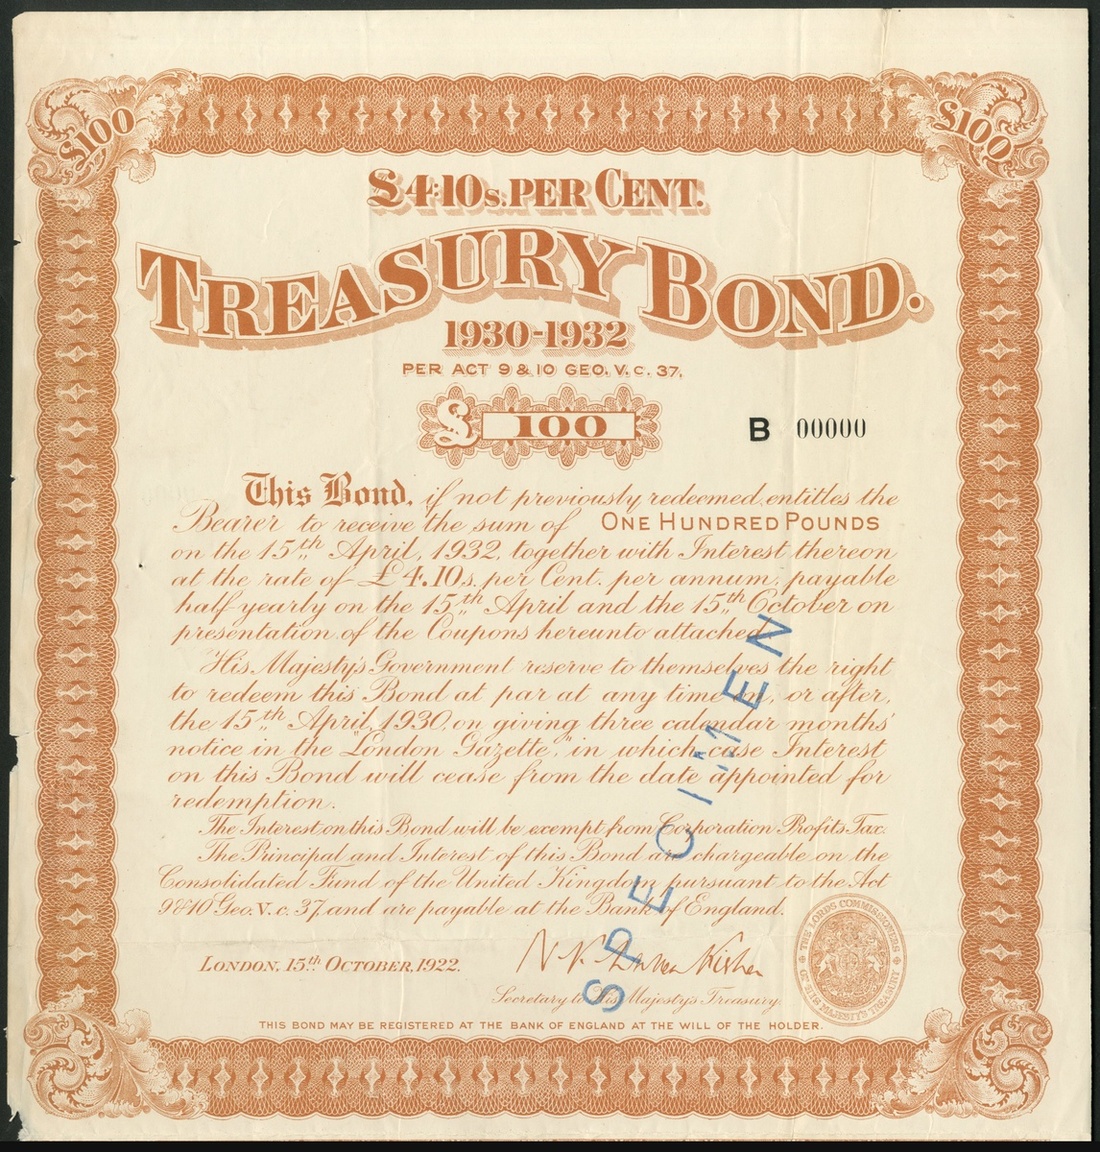 £100
£100
£4:10s. PER CENT.
TREASURY BOND.
1930-1932
PER ACT 9 & 10 GEO. V. C. 37.
£ 100
B 00000
This Bond, if not previously redeemed, entitles the
Bearer to receive the sum of ONE HUNDRED POUNDS
on the 15th April, 1932, together with Interest thereon
at the rate of £4.10s. per Cent. per annum, payable
half-yearly on the 15th April and the 15th October on
presentation of the Coupons hereunto attached.
His Majesty's Government reserve to themselves the right
to redeem this Bond at par at any time on, or after,
the 15th April, 1930, on giving three calendar months'
notice in the "London Gazette," in which case Interest
on this Bond will cease from the date appointed for
redemption.
The Interest on this Bond will be exempt from Corporation Profits Tax.
The Principal and Interest of this Bond are chargeable on the
Consolidated Fund of the United Kingdom pursuant to the Act
9 & 10 Geo. V. c. 37, and are payable at the Bank of England.
SPECIMEN
LONDON, 15th OCTOBER, 1922.
Secretary to His Majesty's Treasury.
THE LORDS COMMISSIONERS OF HIS MAJESTY'S TREASURY
THIS BOND MAY BE REGISTERED AT THE BANK OF ENGLAND AT THE WILL OF THE HOLDER.